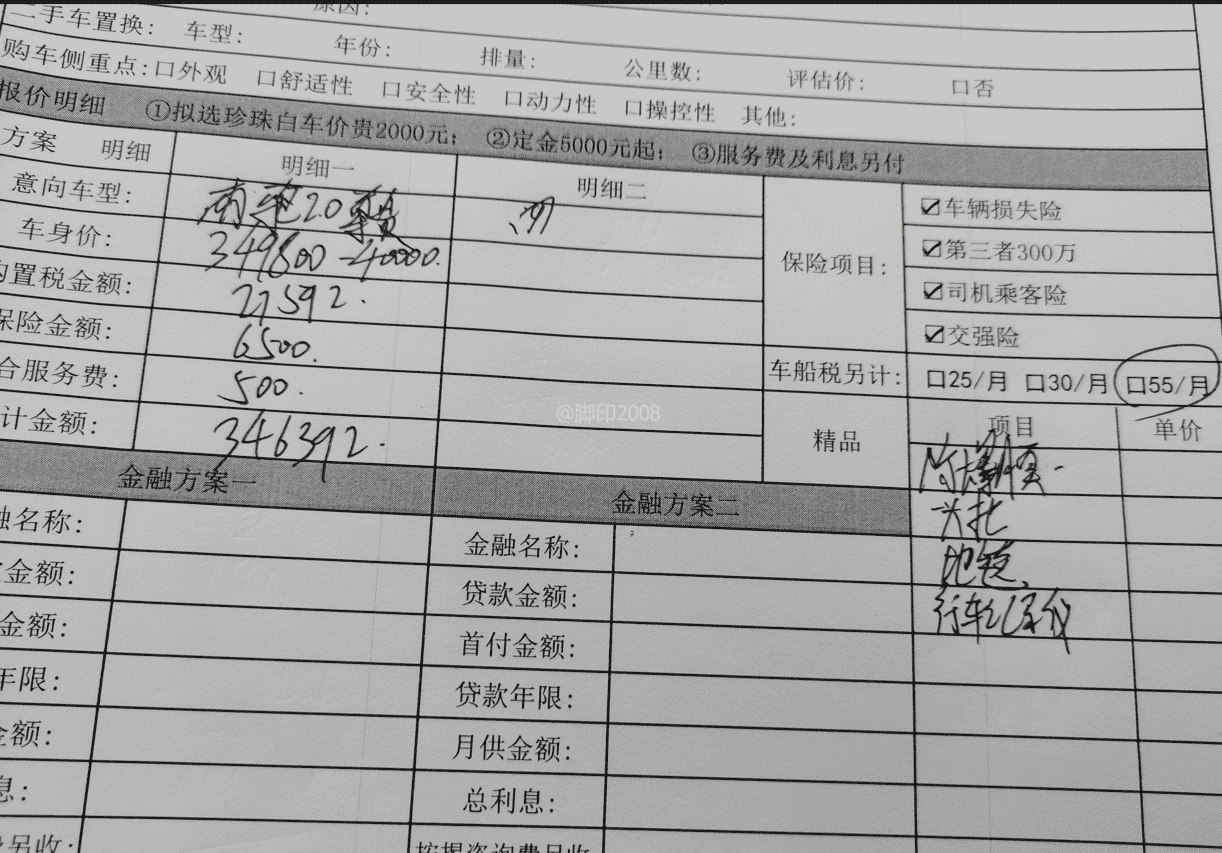 原因:
二手车置换: 车型: 年份: 排量: 公里数: 评估价: 口否
购车侧重点:口外观 口舒适性 口安全性 口动力性 口操控性 其他:
报价明细 ①拟选珍珠白车价贵2000元; ②定金5000元起; ③服务费及利息另付
方案 明细 明细一 明细二
意向车型: 2.0
车身价: 349800-40000.
购置税金额:
保险金额: 6500.
合服务费: 500.
计金额: 346392.
保险项目: ☑车辆损失险
☑第三者300万
☑司机乘客险
☑交强险
车船税另计: 口25/月 口30/月 口55/月
精品 项目 单价
地毯
行车记录仪
金融方案一 金融方案二
融名称: 金融名称:
金额: 贷款金额:
金额: 首付金额:
年限: 贷款年限:
金额: 月供金额:
息: 总利息:
另收: 按揭咨询费另收
@脚印2008